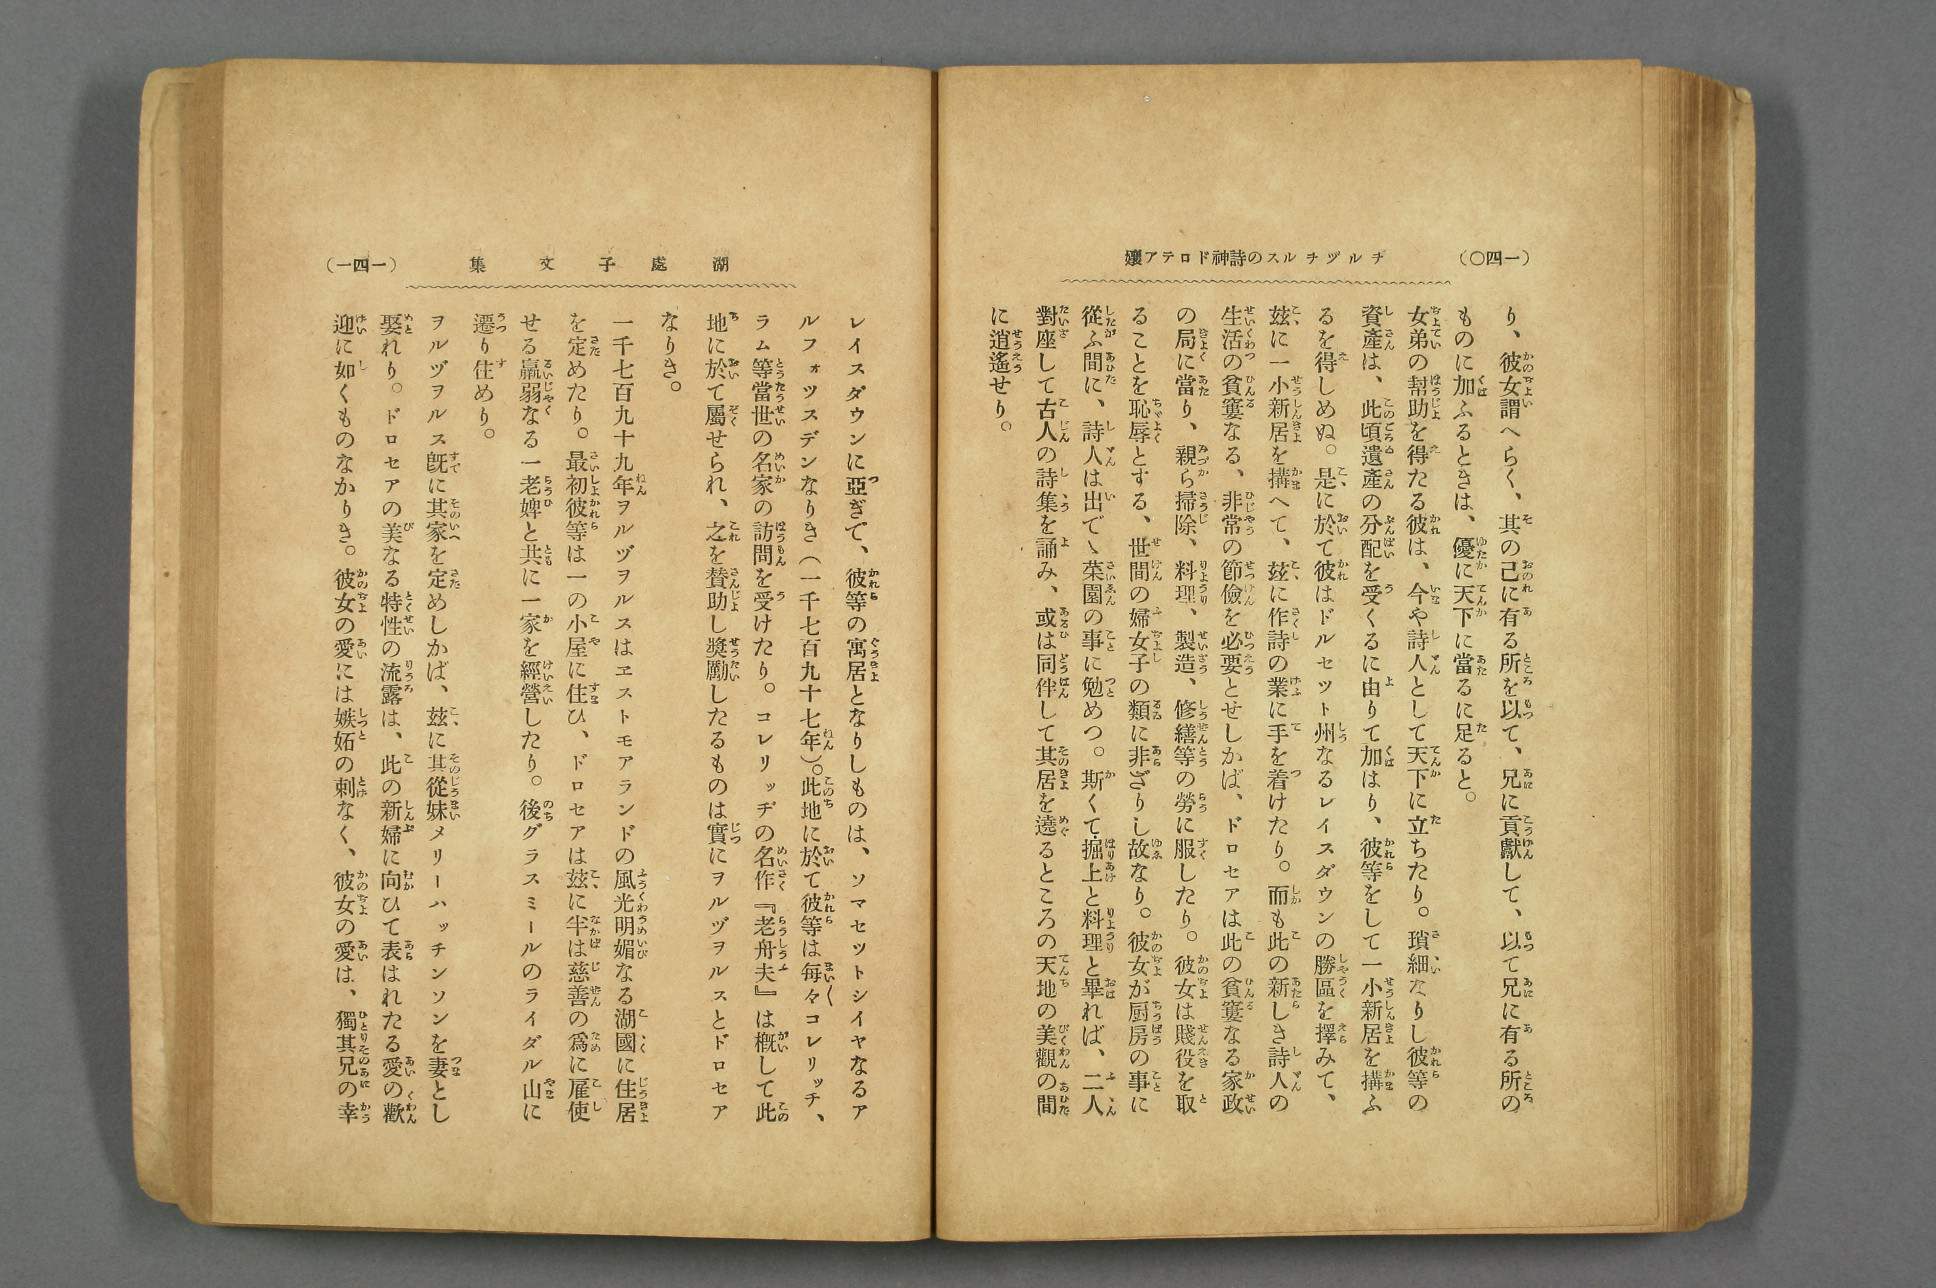 (一四〇)
チルヅチルスの詩神ドロテア孃
り、彼女謂へらく、其の己に有る所を以て、兄に貢獻して、以て兄に有る所の
ものに加ふるときは、優に天下に當るに足ると。
女弟の幇助を得たる彼は、今や詩人として天下に立ちたり。瑣細なりし彼等の
資產は、此頃遺產の分配を受くるに由りて加はり、彼等をして一小新居を搆ふ
るを得しめぬ。是に於て彼はドルセット州なるレイスダウンの勝區を擇みて、
玆に一小新居を搆へて、玆に作詩の業に手を着けたり。而も此の新しき詩人の
生活の貧窶なる、非常の節儉を必要とせしかば、ドロセアは此の貧窶なる家政
の局に當り、親ら掃除、料理、製造、修繕等の勞に服したり。彼女は賤役を取
ることを恥辱とする、世間の婦女子の類に非ざりし故なり。彼女が厨房の事に
從ふ間に、詩人は出でゝ菜園の事に勉めつ。斯くて掘上と料理と畢れば、二人
對座して古人の詩集を誦み、或は同伴して其居を遶るところの天地の美觀の間
に逍遙せり。
湖處子文集
(一四一)
レイスダウンに亞ぎて、彼等の寓居となりしものは、ソマセットシイヤなるア
ルフォツスデンなりき(一千七百九十七年)。此地に於て彼等は每々コレリッチ、
ラム等當世の名家の訪問を受けたり。コレリッヂの名作『老舟夫』は槪して此
地に於て屬せられ、之を賛助し奬勵したるものは實にヲルヅヲルスとドロセア
なりき。
一千七百九十九年ヲルヅヲルスはヱストモアランドの風光明媚なる湖國に住居
を定めたり。最初彼等は一の小屋に住ひ、ドロセアは玆に半は慈善の爲に雇使
せる羸弱なる一老婢と共に一家を經營したり。後グラスミールのライダル山に
遷り住めり。
ヲルヅヲルス旣に其家を定めしかば、玆に其從妹メリーハッチンソンを妻とし
娶れり。ドロセアの美なる特性の流露は、此の新婦に向ひて表はれたる愛の歡
迎に如くものなかりき。彼女の愛には嫉妬の刺なく、彼女の愛は、獨其兄の幸